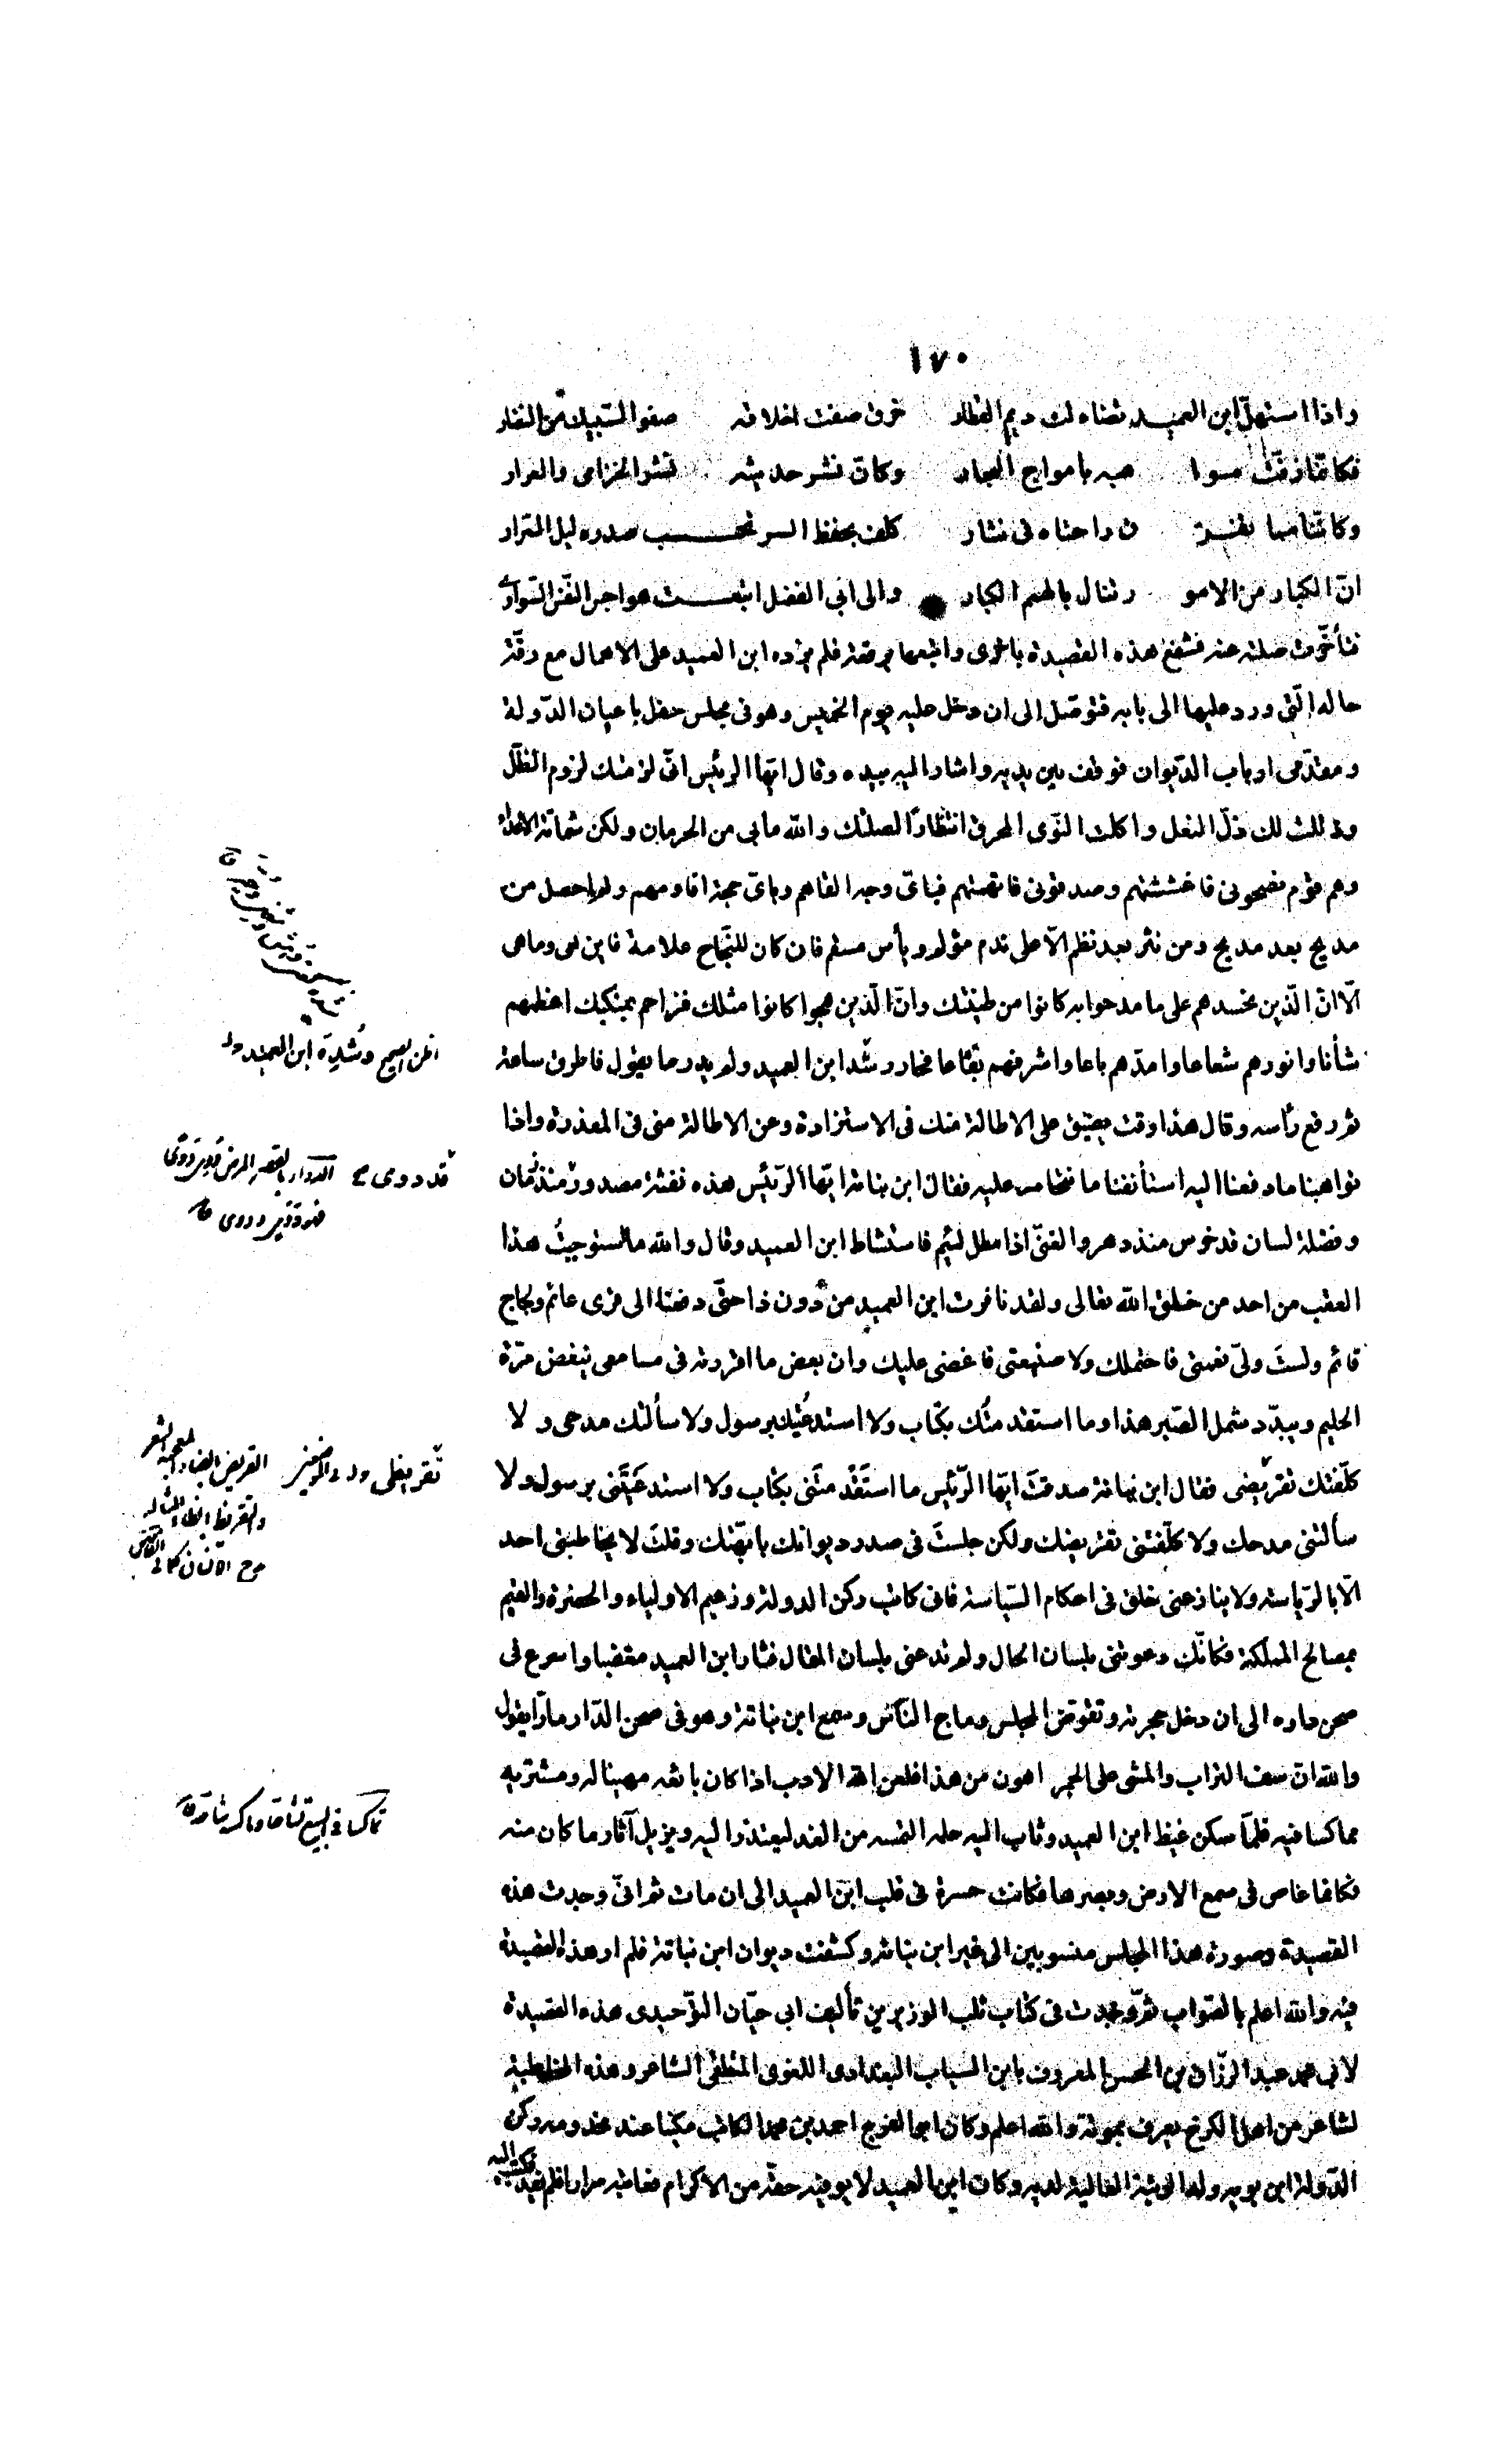 ١٧٠
واذا استهل ابن العميد تضاءلت ديم القطار خرق صفت اخلاقه صفو السبيك من النضار
فكانما زفت موا هبه بامواج البحار وكان نشر حديثه نشر الخزامى والعرار
وكاننا مما تفر ق راحتاه فى نثار كلف بحفظ السر تحسب صدره ليل السرار
ان الكبار من الامو ر تنال بالهمم الكبار والى ابى الفضل انبعثت هواجس النفس السوارى
فتأخرت صلته عنه فشفع هذه القصيدة باخرى واتبعها برقعة فلم يزده ابن العميد على الاهمال مع رقة
حاله التى ورد عليها الى بابه فتوصل الى ان دخل عليه يوم الخميس وهو فى مجلس حفل باعيان الدولة
ومقدمى ارباب الديوان فوقف بين يديه واشار اليه بيده وقال ايها الرئيس انى لزمتك لزوم الظل
وذللت لك ذل النعل واكلت النوى المحرق انتظارا لصلتك والله ما بى من الحرمان ولكن شماتة الاعداء
وهم قوم نصحونى فاغششتهم وصدقونى فاتهمتهم فباى وجه القاهم وباى حجة اقاومهم ولم احصل من
مديح بعد مديح ومن نثر بعد نظم الا على ندم مؤلم ويأس مسقم فان كان للنجاح علامة فاين هى وما هى
الا ان الذين نحسدهم على ما مدحوا به كانوا من طينتك وان الذين هجوا كانوا مثلك فزاحم بمنكبك اعظمهم
شأنا وانورهم شعاعا وامدهم باعا واشرفهم بقاعا فحار رشد ابن العميد ولم يدر ما يقول فاطرق ساعة
ثم رفع رأسه وقال هذا وقت يضيق على الاطالة منك فى الاستزادة وعن الاطالة منى فى المعذرة واذا
تواهبنا ما دفعنا اليه استأنفنا ما نتحامد عليه فقال ابن نباتة ايها الرئيس هذه نفثة مصدور منذ زمان
وفضلة لسان قد خرس منذ دهر والغنى اذا مطل لئيم فاستشاط ابن العميد وقال والله ما استوجبت هذا
العتب من احد من خلق الله تعالى ولقد نافرت ابن العميد من دون ذا حتى دفعنا الى قرى عاتم ولجاج
قائم ولست ولى نعمتى فاحتملك ولا صنيعتى فاغضى عليك وان بعض ما اقررته فى مسامعى ينغص مرة
الحليم ويبدد شمل الصبر هذا وما استقدمتك بكتاب ولا استدعيتك برسول ولا سألتك مدحى ولا
كلفتك تقريضى فقال ابن نباتة صدقت ايها الرئيس ما استقدمتنى بكتاب ولا استدعيتنى برسول ولا
سألتنى مدحك ولا كلفتنى تقريضك ولكن جلست فى صدر ديوانك بابهتك وقلت لا يخاطبنى احد
الا بالرياسة ولا ينازعنى خلق فى احكام السياسة فانى كاتب ركن الدولة وزعيم الاولياء والحضرة والقيم
بمصالح المملكة فكانك دعوتنى بلسان الحال ولم تدعنى بلسان المقال فثار ابن العميد مغضبا واسرع فى
صحن داره الى ان دخل حجرته وتقوض المجلس وماج الناس وسمع ابن نباتة وهو فى صحن الدار مارا يقول
والله ان سف التراب والمشى على الجمر اهون من هذا فلعن الله الادب اذا كان بائعه مهينا له ومشتريه
مماكسا فيه فلما سكن غيظ ابن العميد وثاب اليه حلمه التمسه من الغد ليعتذر اليه ويزيل آثار ما كان منه
فكانما غاص فى سمع الارض وبصرها فكانت حسرة فى قلب ابن العميد الى ان مات ثم انى وجدت هذه
القصيدة وصورة هذا المجلس منسوبين الى غير ابن نباتة وكشفت ديوان ابن نباتة فلم ار هذه القصيدة
فيه والله اعلم بالصواب ثم وجدت فى كتاب ثلب الوزيرين تأليف ابى حيان التوحيدى هذه القصيدة
لابى محمد عبد الرزاق بن الحسين المعروف بابن السياب البغدادى اللغوى المنطقى الشاعر وهذه المخاطبة
لشاعر من اهل الكرخ يعرف بمويه والله اعلم وكان ابو الفرج احمد بن محمد الكاتب مكينا عند مخدومه ركن
الدولة ابن بويه وله الرتبة العالية لديه وكان ابن العميد لا يوفيه حقه من الاكرام فعاتبه مرارا فلم يفد فكتب اليه
اظن الصحيح رشد ابن العميد
قد دوى
تقريظى
القريض بالضاد المعجمة الشعر
والتقريظ بالظاء
مدح الانسان